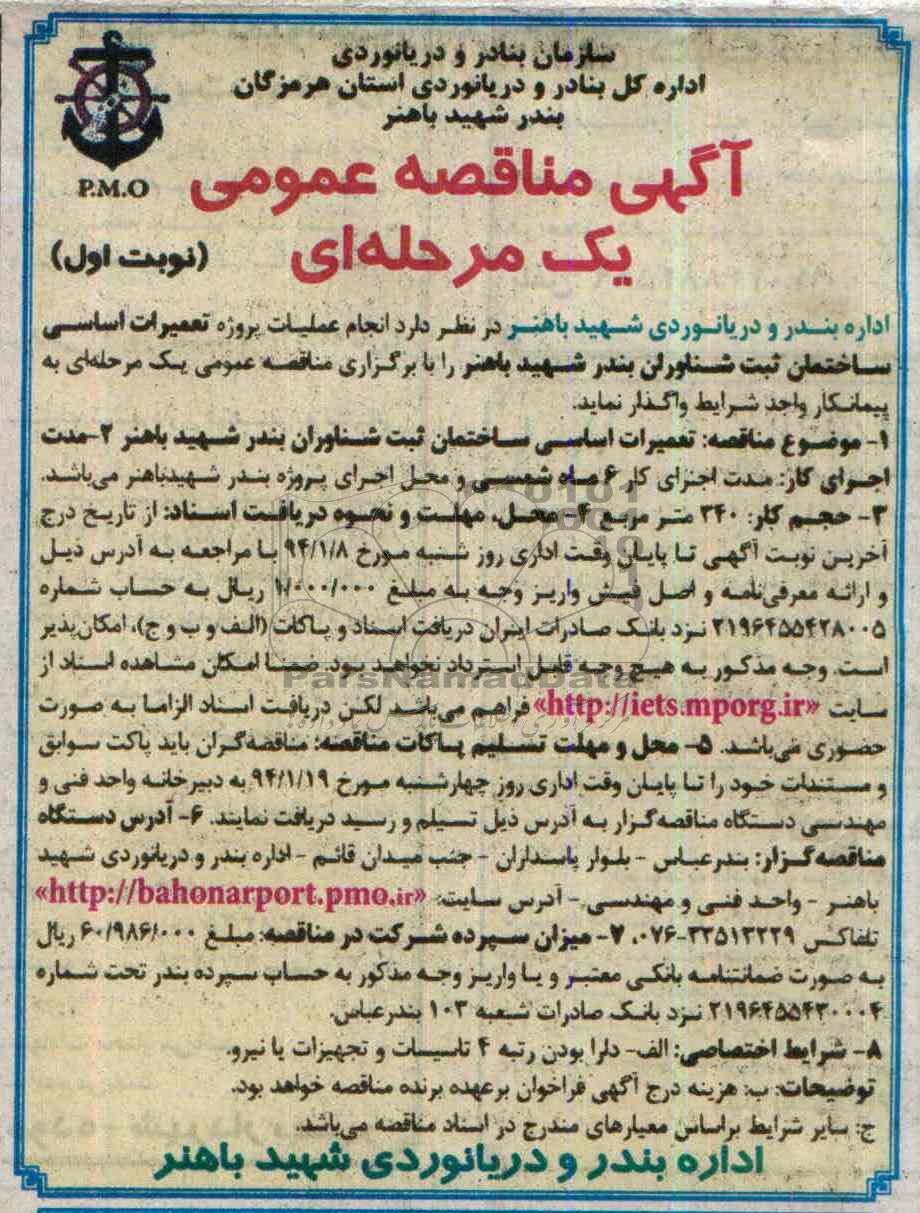 سازمان بنادر و دریانوردی
اداره کل بنادر و دریانوردی استان هرمزگان
بندر شهید باهنر
P.M.O
آگهی مناقصه عمومی
یک مرحله‌ای
(نوبت اول)
اداره بندر و دریانوردی شهید باهنر در نظر دارد انجام عملیات پروژه تعمیرات اساسی
ساختمان ثبت شناوران بندر شهید باهنر را با برگزاری مناقصه عمومی یک مرحله‌ای به
پیمانکار واجد شرایط واگذار نماید.
۱- موضوع مناقصه: تعمیرات اساسی ساختمان ثبت شناوران بندر شهید باهنر ۲-مدت
اجرای کار: مدت اجرای کار ۶ ماه شمسی و محل اجرای پروژه بندر شهیدباهنر می‌باشد.
۳- حجم کار: ۳۴۰ متر مربع ۴- محل، مهلت و نحوه دریافت اسناد: از تاریخ درج
آخرین نوبت آگهی تا پایان وقت اداری روز شنبه مورخ ۹۴/۱/۸ با مراجعه به آدرس ذیل
و ارائه معرفی‌نامه و اصل فیش واریز وجه به مبلغ ۱/۰۰۰/۰۰۰ ریال به حساب شماره
۲۱۹۶۴۵۵۴۲۸۰۰۵ نزد بانک صادرات ایران دریافت اسناد و پاکات (الف و ب و ج)، امکان‌پذیر
است. وجه مذکور به هیچ وجه قابل استرداد نخواهد بود. ضمنا امکان مشاهده اسناد از
سایت «http://iets.mporg.ir» فراهم می‌باشد لکن دریافت اسناد الزاما به صورت
حضوری می‌باشد. ۵- محل و مهلت تسلیم پاکات مناقصه: مناقصه‌گران باید پاکت سوابق
و مستندات خود را تا پایان وقت اداری روز چهارشنبه مورخ ۹۴/۱/۱۹ به دبیرخانه واحد فنی و
مهندسی دستگاه مناقصه‌گزار به آدرس ذیل تسیلم و رسید دریافت نمایند. ۶- آدرس دستگاه
مناقصه‌گزار: بندرعباس - بلوار پاسداران - جنب میدان قائم - اداره بندر و دریانوردی شهید
باهنر - واحد فنی و مهندسی - آدرس سایت: «http://bahonarport.pmo.ir»
تلفاکس ۳۳۵۱۳۲۲۹-۰۷۶. ۷- میزان سپرده شرکت در مناقصه: مبلغ ۶۰/۹۸۶/۰۰۰ ریال
به صورت ضمانتنامه بانکی معتبر و یا واریز وجه مذکور به حساب سپرده بندر تحت شماره
۲۱۹۶۴۵۵۴۳۰۰۰۴ نزد بانک صادرات شعبه ۱۰۳ بندرعباس.
۸- شرایط اختصاصی: الف- دارا بودن رتبه ۴ تاسیسات و تجهیزات یا نیرو.
توضیحات: ب: هزینه درج آگهی فراخوان برعهده برنده مناقصه خواهد بود.
ج: سایر شرایط براساس معیارهای مندرج در اسناد مناقصه می‌باشد.
اداره بندر و دریانوردی شهید باهنر
ParsNamadData